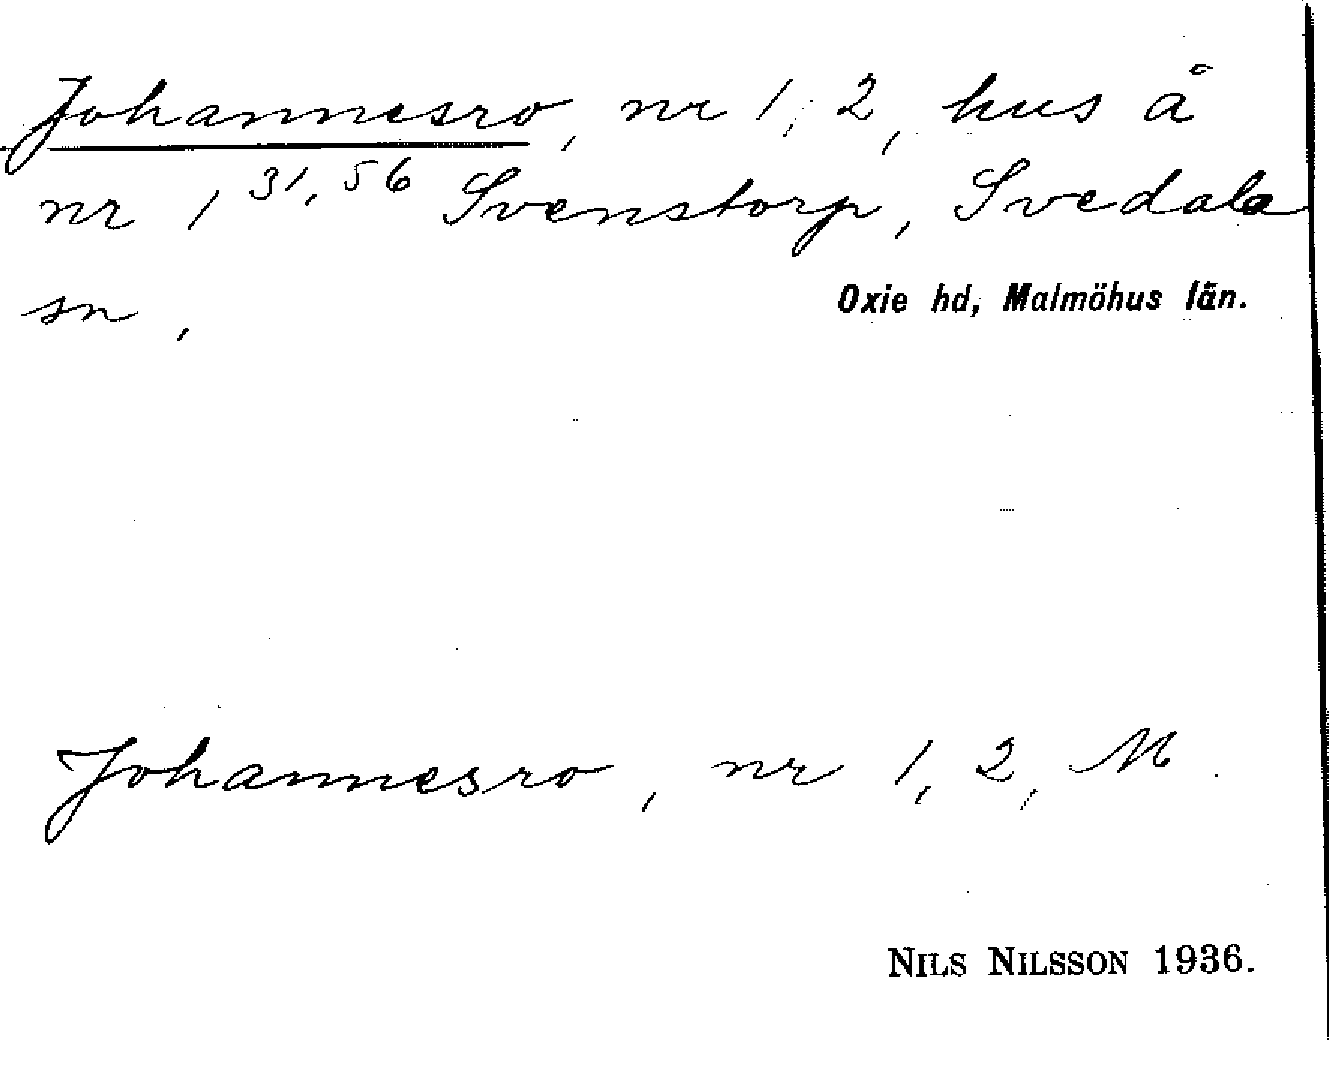 Johannesro, nr 1, 2, hus å
nr 1 31, 56 Svenstorp, Svedala
sn,
Oxie hd, Malmöhus län.
Johannesro, nr 1, 2, M.
NILS NILSSON 1936.